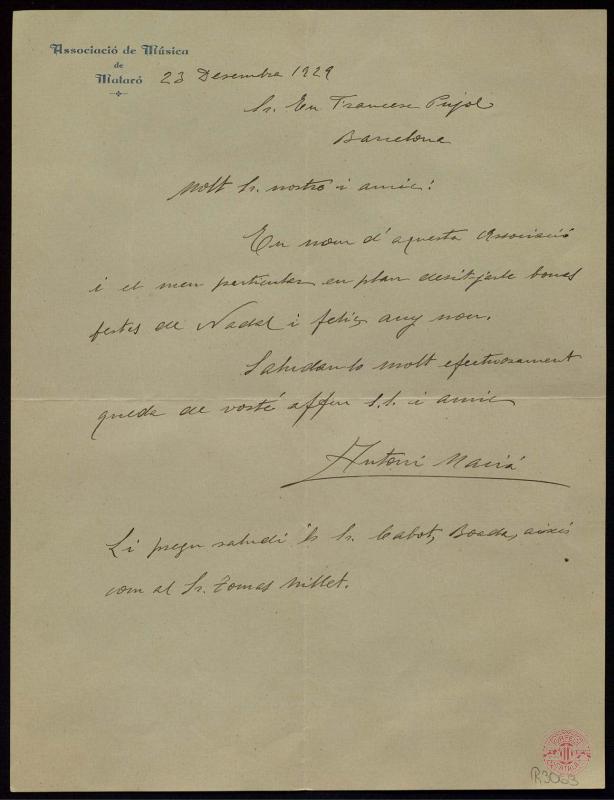 Associació de Música
de
Mataró
23 Desembre 1929
Sr. En Francesc Pujol
Barcelona
Molt Sr. nostre i amic:
En nom d'aquesta Associació
i el meu particular em plau desitjarle bones
festes de Nadal i feliç any nou.
Saludantlo molt efectuosament
queda de vosté affm S.S. i amic
Antoni Macià
Li prega saludi als Srs. Cabot, Boada, aixís
com al Sr. Tomas Millet.
R3063